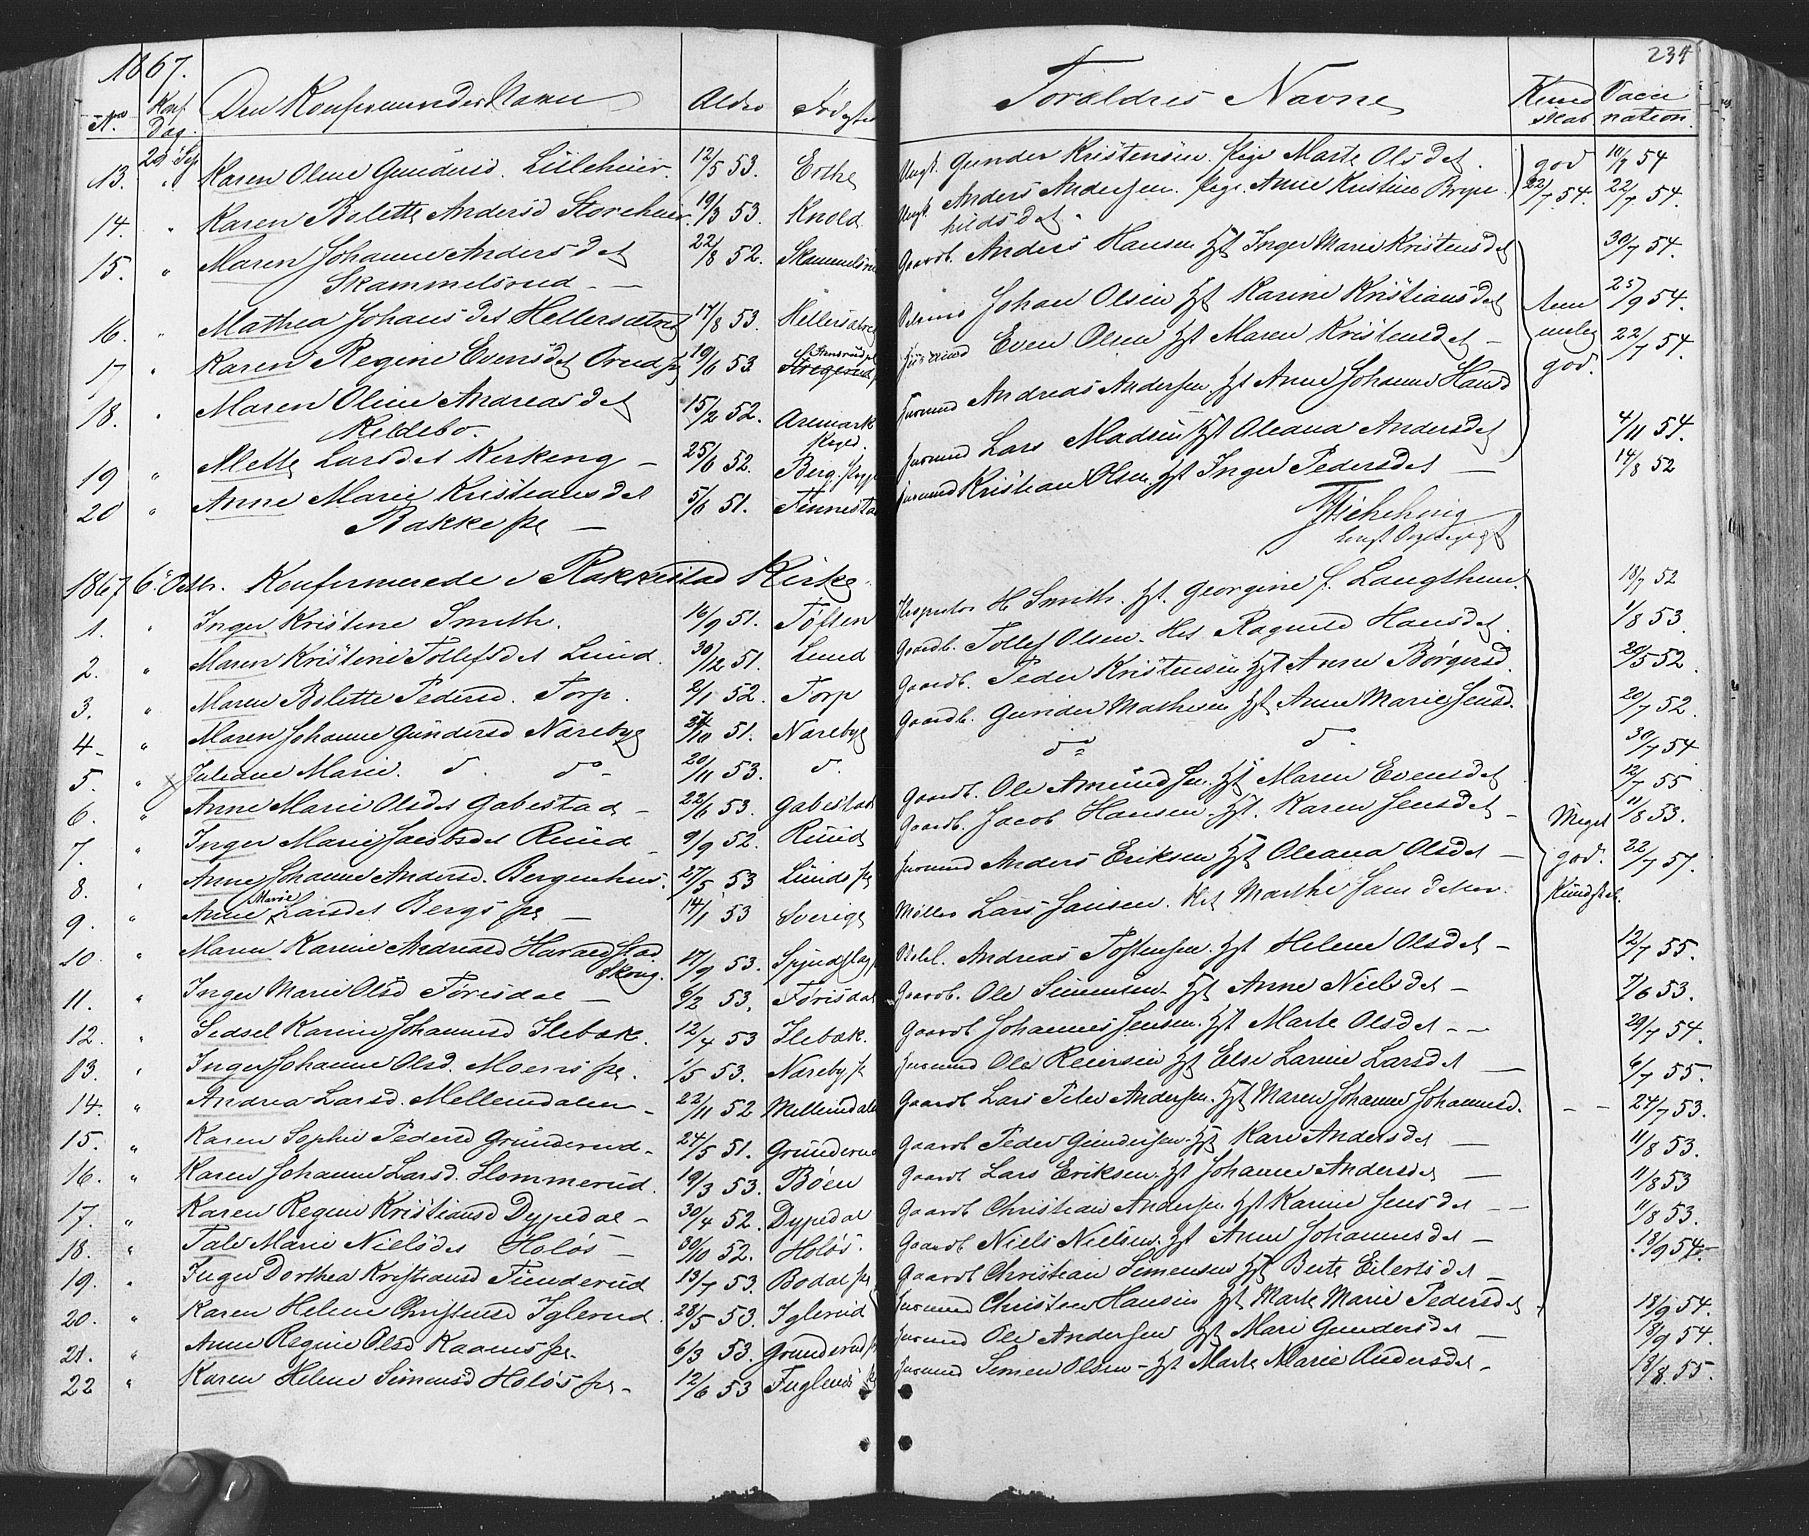 1867.
234
No Konf. Dag. Den Konfirmeredes Navn Alder Fødested Forældres Navne Kund skab Vacci nation
13. 29 Sep Karen Oline Gunders. Lilleheier. 12/5 53. Erthe Ungk. Gunder Kristensen. Pige Marte Olsdet. god 10/7 54
14. " Karen Bolette Andersd Storeheier 19/3 53. Knold Ungk. Anders Andersen. Pige Anne Kristine Bryn- 22/7 54. 22/7 54.
hildsdet.
15. " Maren Johanne Andersdet 22/8 52. Skammelsrud Gaardb. Anders Hansen Hst Inger Marie Kristensdet 30/7 54.
Skammelsrud
16. " Mathea Johansdet Hellersætre 17/8 53. Hellersætre Johan Olsen Hst Karine Kristiansdet 25/9 54.
17 " Karen Regine Evensdet Brudspe 19/6 53. Even Olsen Hst Maren Kristensdet 22/7 54.
Nem melig god.
18. " Maren Oline Andreasdet 15/2 52. Aremark Huusmd Andreas Andersen Hst Anne Johanne Hansd
Kildebo. Præged.
19 " Alette Larsdet Kirkeng 25/6 52. Berg Huusmd Lars Madsen Hst Oleana Andersdet 4/11 54.
20 " Anne Marie Kristiansdet 5/6 51. Finnestad Huusmd Kristian Olsen Hst Inger Pedersdet 14/8 52
Bakke pe
1867 6 Octbr. Konfirmerede i Rakkestad Kirke
1. " Inger Kristine Smith. 16/9 51. Tøften Inspector H Smith. Hst. Georgine f. Langthun. 18/7 52
2. " Maren Kristine Tollefsdet Lund. 30/12 51. Lund Gaardb. Tollef Olsen. Hst Ragnild Hansdet. 1/8 53.
3. " Maren Bolette Pedersd. Torp. 2/1 52. Torp Gaardb. Peder Kristensen Hst Anne Børgersd. 20/5 52.
4 " Maren Johanne Gundersd Narebye 24/10 51. Narebye Gaardb. Gunder Mathesen Hst Anne Marie Jensd. 20/7 52.
5. " Juliane Marie. do. do. 20/11 53. do. do do 30/7 54
6. " Anne Marie Olsdet Gabestad 22/6 53. Gabestad Gaardb. Ole Amundsen. Hst Maren Evensdet 12/7 55
7. " Inger Marie Jacobsdet Ruud 9/9 52. Ruud Gaardb. Jacob Hansen. Hst. Karen Jensdet 11/8 53.
8. " Anne Johanne Andersd. Bergerhus. 27/5 53 Lunds pe Huusmd Anders Eriksen Hst Oleana Olsdet 22/7 57.
9. " Anne Marie Larsdet Bergs pe 14/1 53 Sverige Møller Lars Jansen. Hst Marthe Jansdetter.
Meget god. Kundskab.
10. " Maren Karine Andreasd Haraldstad 17/9 53. Spydslag Andreas Tostensen. Hst Helene Olsdet 12/7 55.
Skoug.
11. " Inger Marie Olsd Førisdal 6/2 53. Førisdal Gaardb. Ole Simensen Hst Anne Nielsdet 7/6 53.
12. " Sedsel Karine Johannesd Ilebæk. 12/4 53 Ilebæk. Gaardb Johannes Jensen. Hst Marte Olsdet 29/7 54.
13. " Inger Johanne Olsd. Moens pe. 1/5 53. Nareby pe Huusmd Ole Reiersen Hst Else Larine Larsdet 6/7 55.
14. " Andrea Larsd. Mellemdalen 22/11 52 Mellemdalen Gaardb Lars Peter Andersen. Hst Maren Johanne Johannesd. 24/7 53.
15. " Karen Sophie Pedersd Grunderud. 24/5 51. Grunderud Gaardb Peder Gundersen. Hst Kari Andersdet 11/8 53.
16. " Karen Johanne Larsd. Slommerud. 19/3 53. Bøen Gaardb Lars Eriksen. Hst Johanne Andersdet 11/8 53
17. " Karen Regine Kristiansd Dypedal 30/4 52. Dypedal Gaardb Christian Andersen Hst Karine Jensdet 11/8 53.
18. " Tale Marie Nielsdet Holøs 30/10 52. Holøs. Gaardb Niels Nielsen. Hst Anne Johannesdet 18/9 54.
19. " Inger Dorthea Kristiansd Funderud 13/7 53. Bodal pe Gaardb Christian Simensen Hst Berte Eilertsdet
20. " Karen Helene Christensd Iglerud. 28/5 53. Iglerud Huusmd Christen Hansen Hst Marte Marie Pedersdet 18/9 54.
21. " Anne Regine Olsd Kaams pe. 6/3 53. Grunderud pe Huusmd Ole Andersen Hst Mari Gundersdet 18/9 54.
22 " Karen Helene Simensd Holøs pe. 12/6 53 Fuglerud pe Huusmd Simen Olsen. Hst Marte Marie Andersdet 18/8 55.